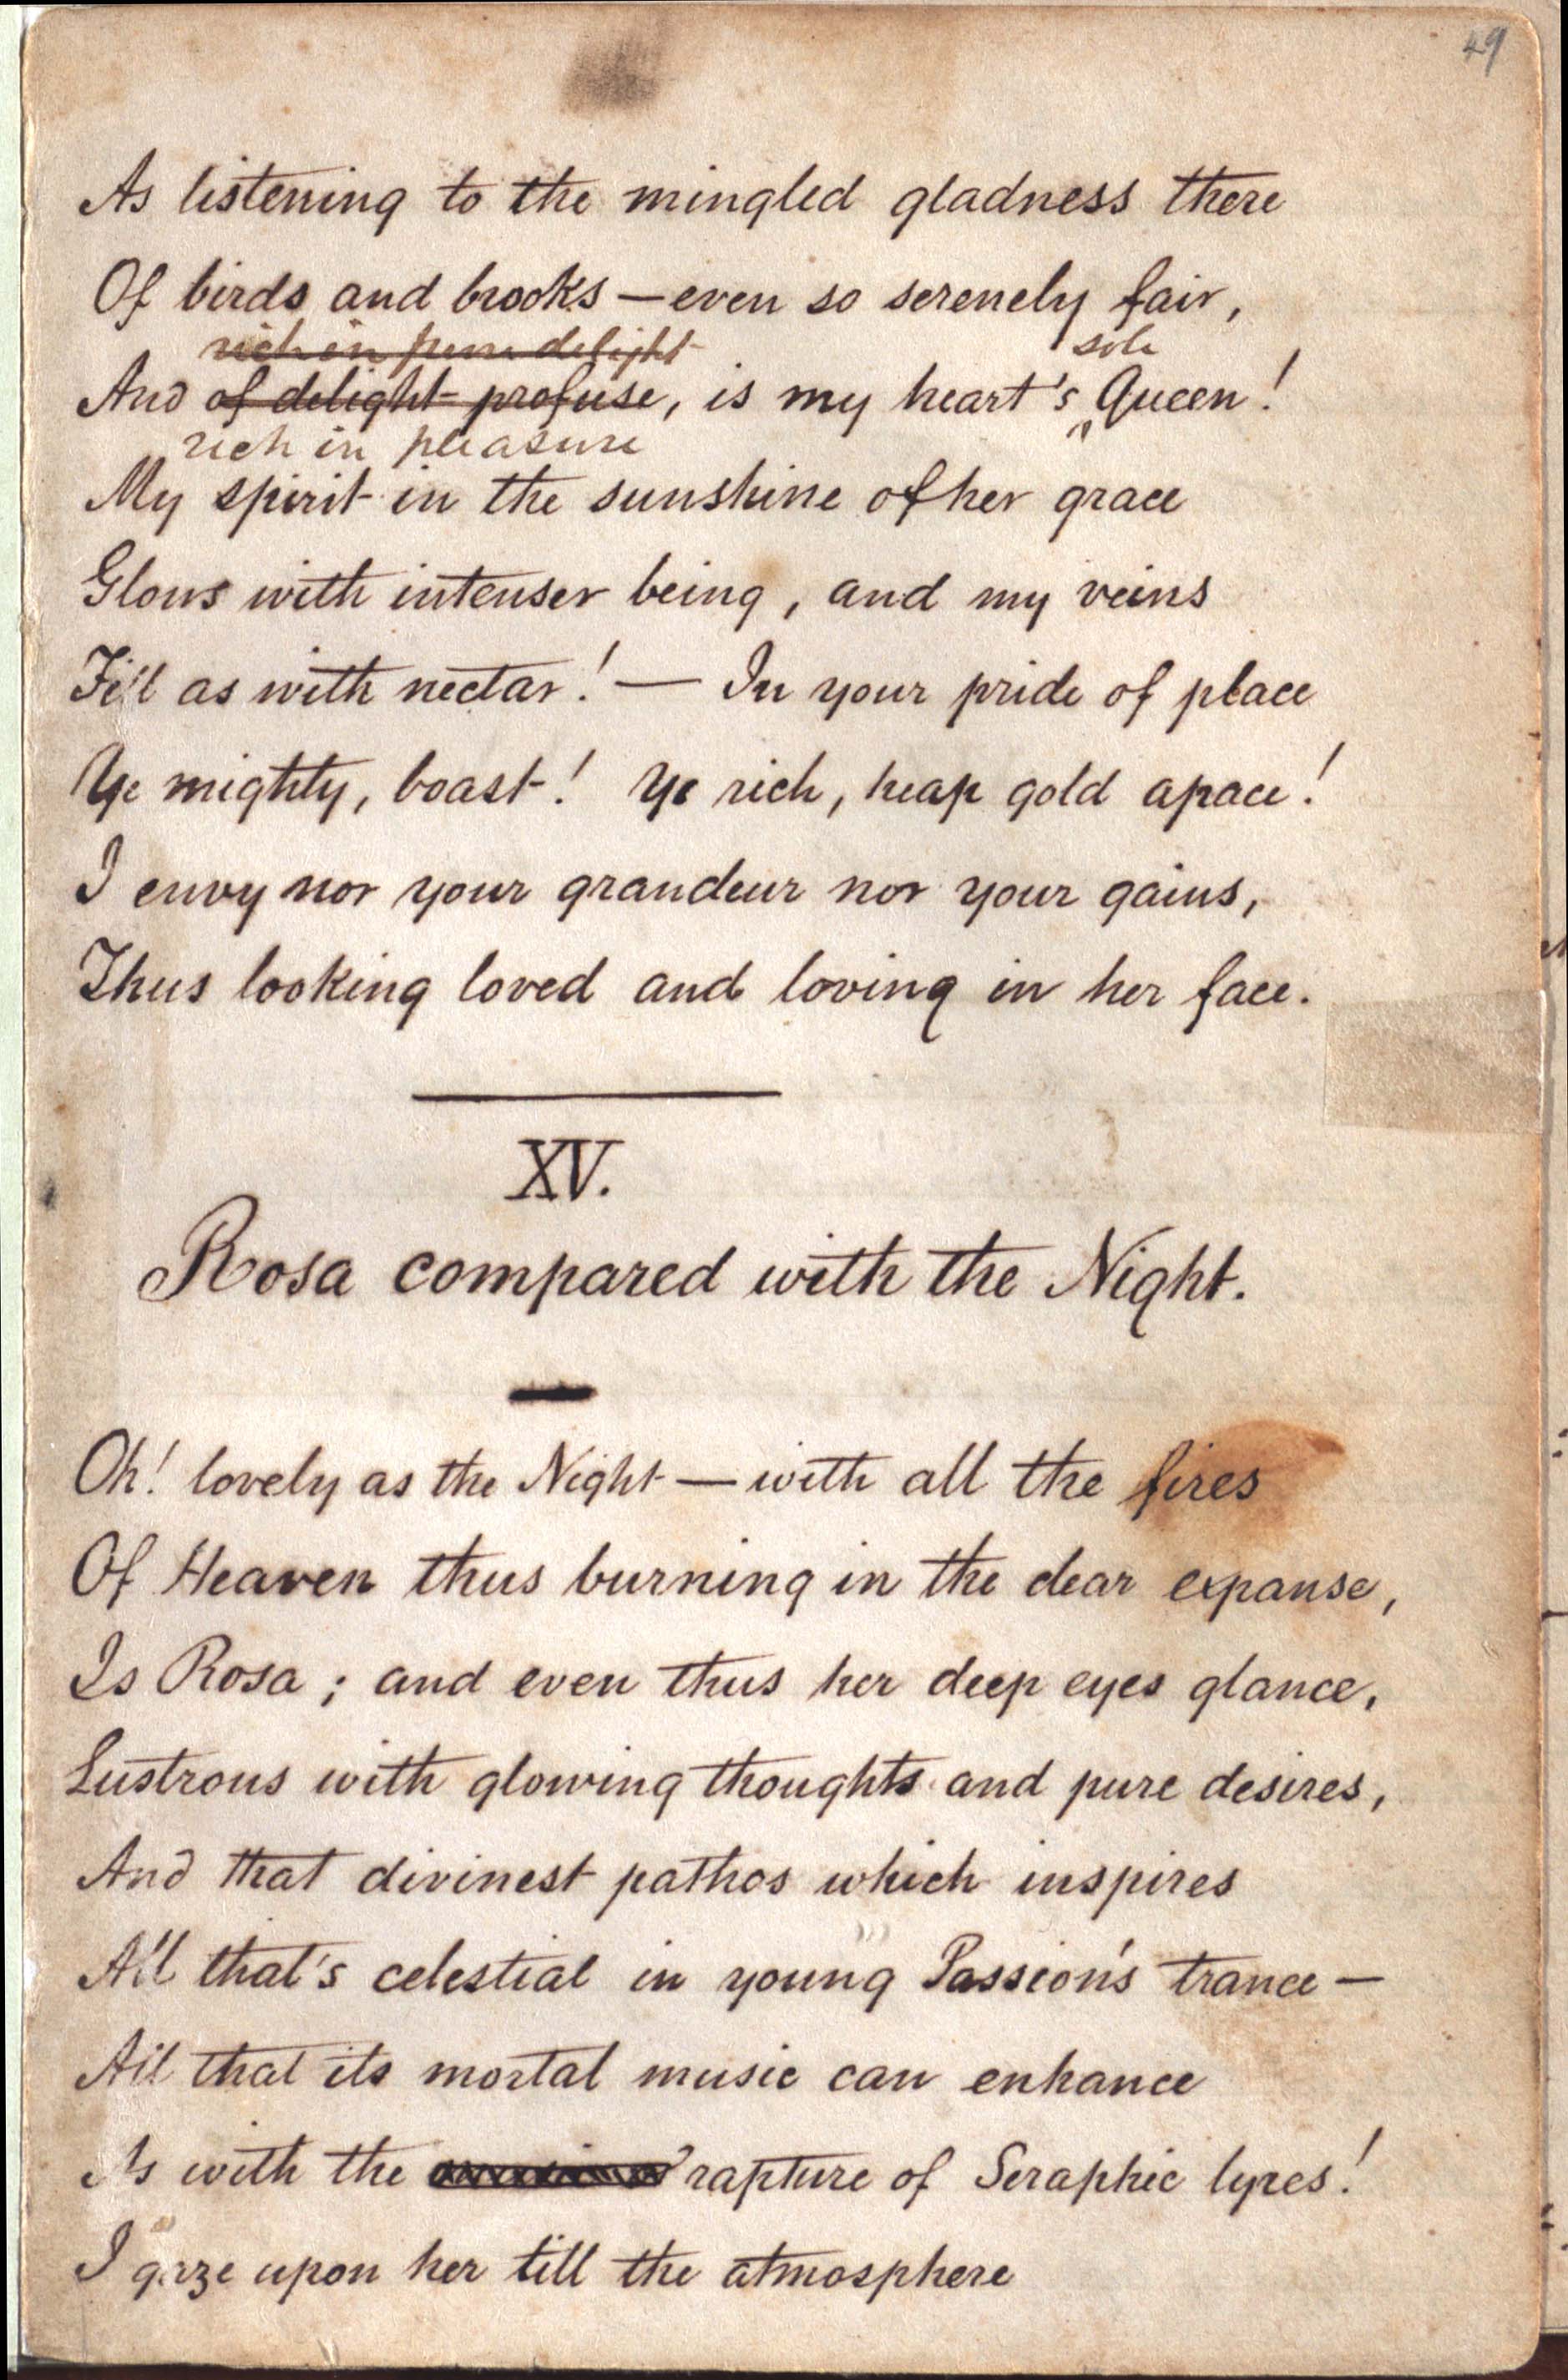 49
As listening to the mingled gladness there
Of birds and brooks — even so serenely fair,
rich in pure delight sole
And of delight profuse, is my heart's Queen!
rich in pleasure
My spirit in the sunshine of her grace
Glows with intenser being, and my veins
Fill as with nectar! — In your pride of place
Ye mighty, boast! Ye rich, heap gold apace!
I envy nor your grandeur nor your gains,
Thus looking loved and loving in her face.
XV.
Rosa compared with the Night.
Oh! lovely as the Night — with all the fires
Of Heaven thus burning in the clear expanse,
Is Rosa; and even thus her deep eyes glance,
Lustrous with glowing thoughts and pure desires,
And that divinest pathos which inspires
All that's celestial in young Passion's trance —
All that its mortal music can enhance
As with the rapture of Seraphic lyres!
I gaze upon her till the atmosphere